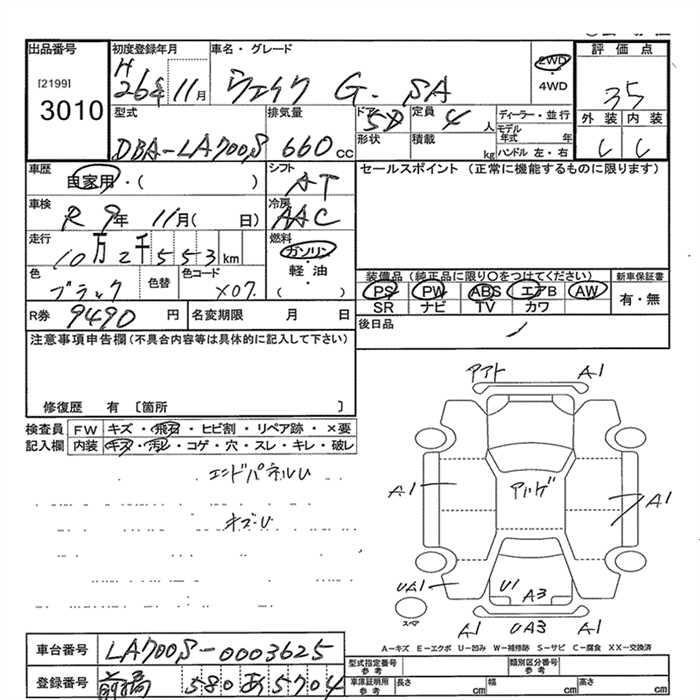 出品番号 初度登録年月 車名・グレード 2WD 評価点
[2199] H 26年 11月 ウェイク G. SA ・ 4WD 35
3010 型式 排気量 ドア 5D 定員 4人 ディーラー・並行 外装 内装
DBA-LA700S 660cc 形状 積載 kg モデル年式 年 ハンドル 左・右 C C
車歴 自家用・( ) シフト AT セールスポイント (正常に機能するものに限ります)
車検 R 9年 11月( 日) 冷房 AAC
走行 10万2千553km 燃料 ガソリン
色 ブラック 色替 色コード X07. ・ 軽油 ・ ( ) 装備品(純正品に限り○をつけてください) 新車保証書
PS PW ABS エアB AW 有・無
R券 9490円 名変期限 月 日 SR ナビ TV カワ
後日品
注意事項申告欄(不具合内容等は具体的に記入して下さい)
修復歴 有 [箇所 ]
検査員 FW キズ・飛石・ヒビ割・リペア跡・×要
記入欄 内装 キズ・汚レ・コゲ・穴・スレ・キレ・破レ
エンドパネルU
キズU
アアト A1
A1 アルゲ A1
UA1 U1 A3
スペア A1 UA3 A1
A－キズ E－エクボ U－凹み W－補修跡 S－サビ C－腐食 XX－交換済
車台番号 LA700S-0003625
型式指定番号 参考 類別区分番号 参考
登録番号 前橋 580 あ 5704
車庫証明用 参考 長さ cm 幅 cm 高さ cm